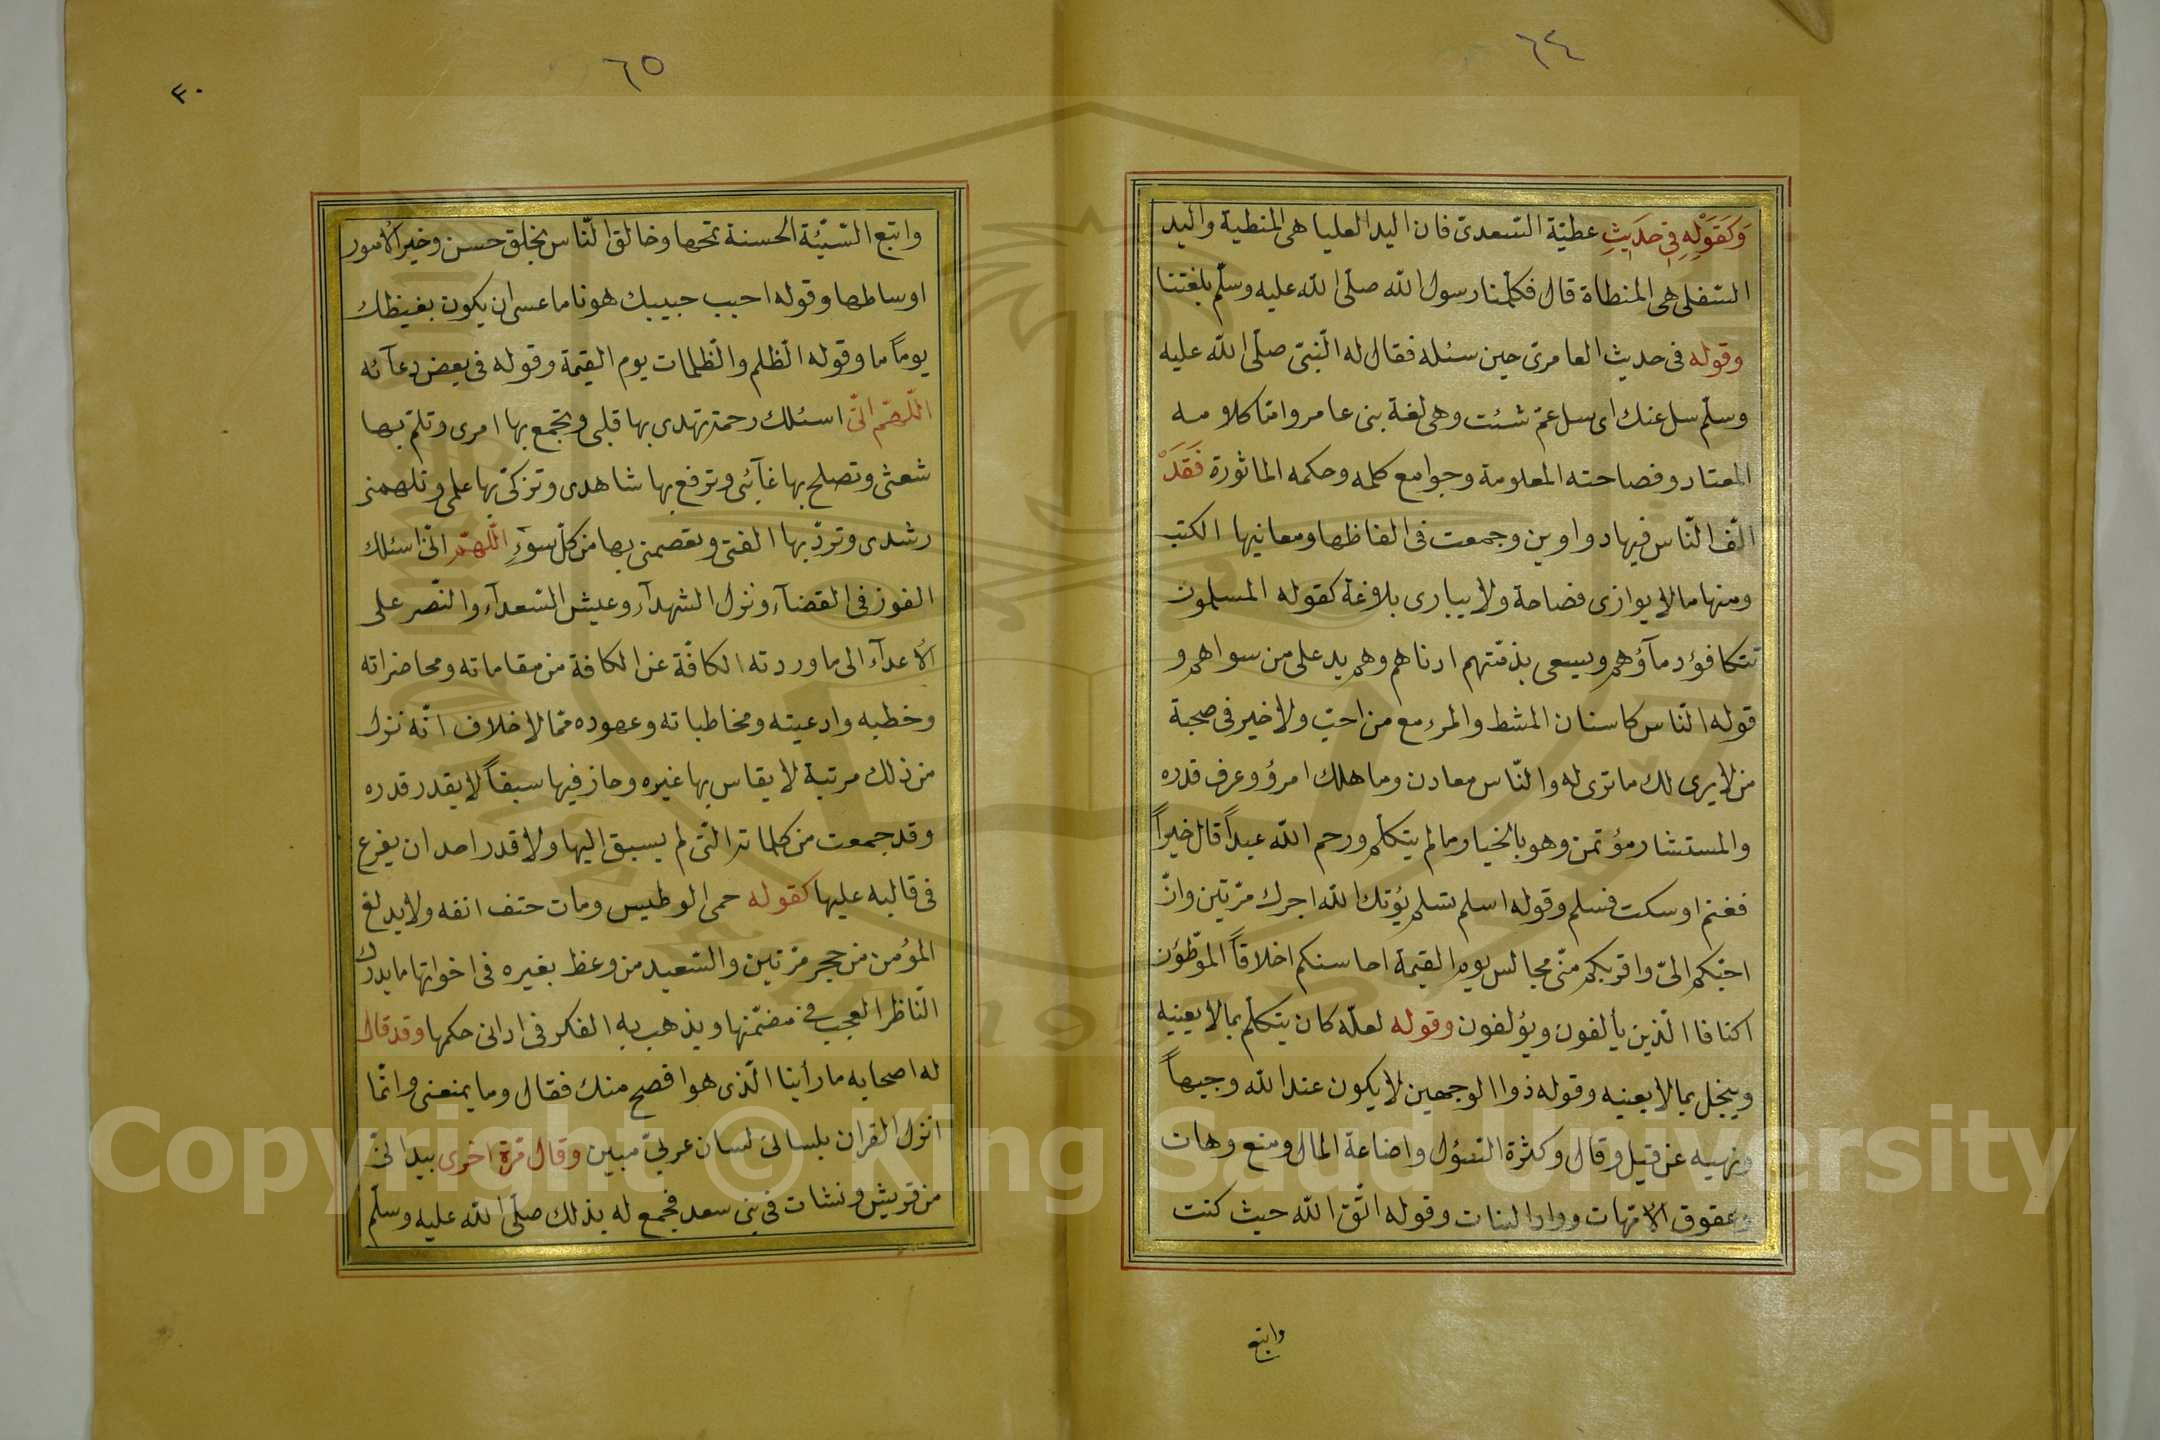 ٦٤
وَكَقَوْلِهِ فِي حَدِيثِ عطيّة السّعدىّ فان اليد العليا هى المنطية واليد
السّفلى هى المنطاة قال فكلّمنا رسول الله صلّى الله عليه وسلّم بلغتنا
وقوله فى حديث العامرى حين سئله فقال له النّبىّ صلّى الله عليه
وسلّم سل عنك اى سل عمّ شئت وهى لغة بنى عامر وامّا كلامه
المعتاد وفصاحته المعلومة وجوامع كلمه وحكمه الماثورة فَقَدْ
الّف النّاس فيها دواوين وجمعت فى الفاظها ومعانيها الكتب
ومنها ما لا يوازى فصاحة ولا يبارى بلاغة كقوله المسلمون
تتكافؤ دمآؤهم ويسعى بذمّتهم ادناهم وهم يد على من سواهم و
قوله النّاس كاسنان المشط والمرء مع من احبّ ولا خير فى صحبة
من لا يرى لك ما ترى له والنّاس معادن وما هلك امرؤ وعرف قدره
والمستشار مؤتمن وهو بالخيار ما لم يتكلّم ورحم الله عبداً قال خيراً
فغنم او سكت فسلم وقوله اسلم تسلم يؤتك الله اجرك مرّتين وانّ
احبّكم الىّ واقربكم منّى مجالس يوم القيمة احاسنكم اخلاقاً الموّطؤن
اكنافا الّذين يألفون ويؤلفون وقوله لعلّه كان يتكلّم بما لا يعنيه
ويبخل بما لا يعنيه وقوله ذوا الوجهين لا يكون عند الله وجيهاً
ونهيه عن قيل وقال وكثرة السّؤل واضاعة المال ومنع وهات
وعقوق الامّهات وواد البنات وقوله اتّق الله حيث كنت
واتبع
٦٥
٣٠
واتبع السّيّئة الحسنة تمحها وخالق النّاس بخلق حسن وخير الامور
اوساطها وقوله احبب حبيبك هونا ما عسى ان يكون بغيظك
يوماً ما وقوله الظّلم والظّلمات يوم القيمة وقوله فى بعض دعآئه
اللّهمّ انّى اسئلك رحمة تهدى بها قلبى وتجمع بها امرى وتلمّ بها
شعثى وتصلح بها غآئبى وترفع بها شاهدى وتزكّى بها علمى وتلهمنى
رشدى وتردّ بها الفتى وتعصمنى بها من كلّ سوءٍ اللّهمّ انّى اسئلك
الفوز فى القضآء ونزل الشهدآء وعيش السّعدآء والنّصر على
الاعدآء الى ما وردته الكافّة عن الكافة من مقاماته ومحاضراته
وخطبه وادعيته ومخاطباته وعهوده ممّا لا خلاف انّه نزل
من ذلك مرتبة لا يقاس بها غيره وحاز فيها سبقاً لا يقدر قدره
وقد جمعت من كلماته الّتى لم يسبق اليها ولا قدر احد ان يفرغ
فى قالبه عليها كقوله حمى الوطيس ومات حتف انفه ولا يدلغ
المؤمن من حجر مرّتين والسّعيد من وعظ بغيره فى اخواتها ما يدرك
النّاظر العجب فى مضمّنها ويذهب به الفكر فى ادانى حكمها وقد قال
له اصحابه ما رأينا الّذى هو افصح منك فقال وما يمنعنى وانّما
انزل القران بلسانى لسان عربىّ مبين وقال مرّة اخرى بيد انّى
من قريش ونشات فى بنى سعد فجمع له بذلك صلّى الله عليه وسلّم
Copyright © King Saud University